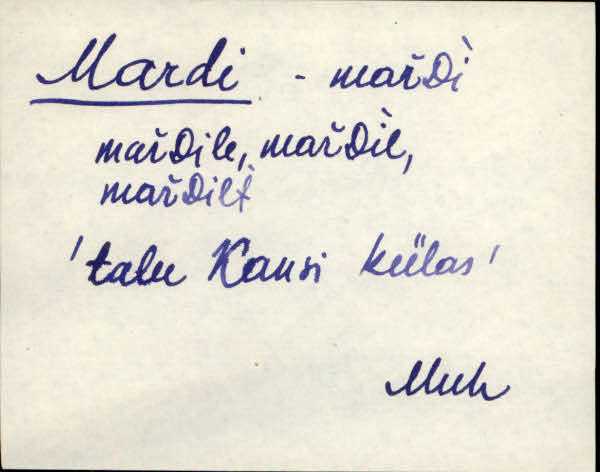 Mardi - mařdì
mařdile, mařdil̀,
mařdilt
'talu Kansi külas'
Muh